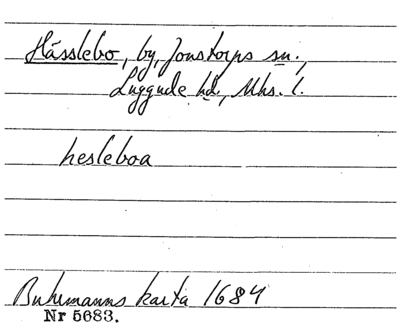 Hässlebo, by, Jonstorps sn.,
Luggude hd., Mhs. l.
hesleboa
Buhrmanns karta 1684
Nr 5683.